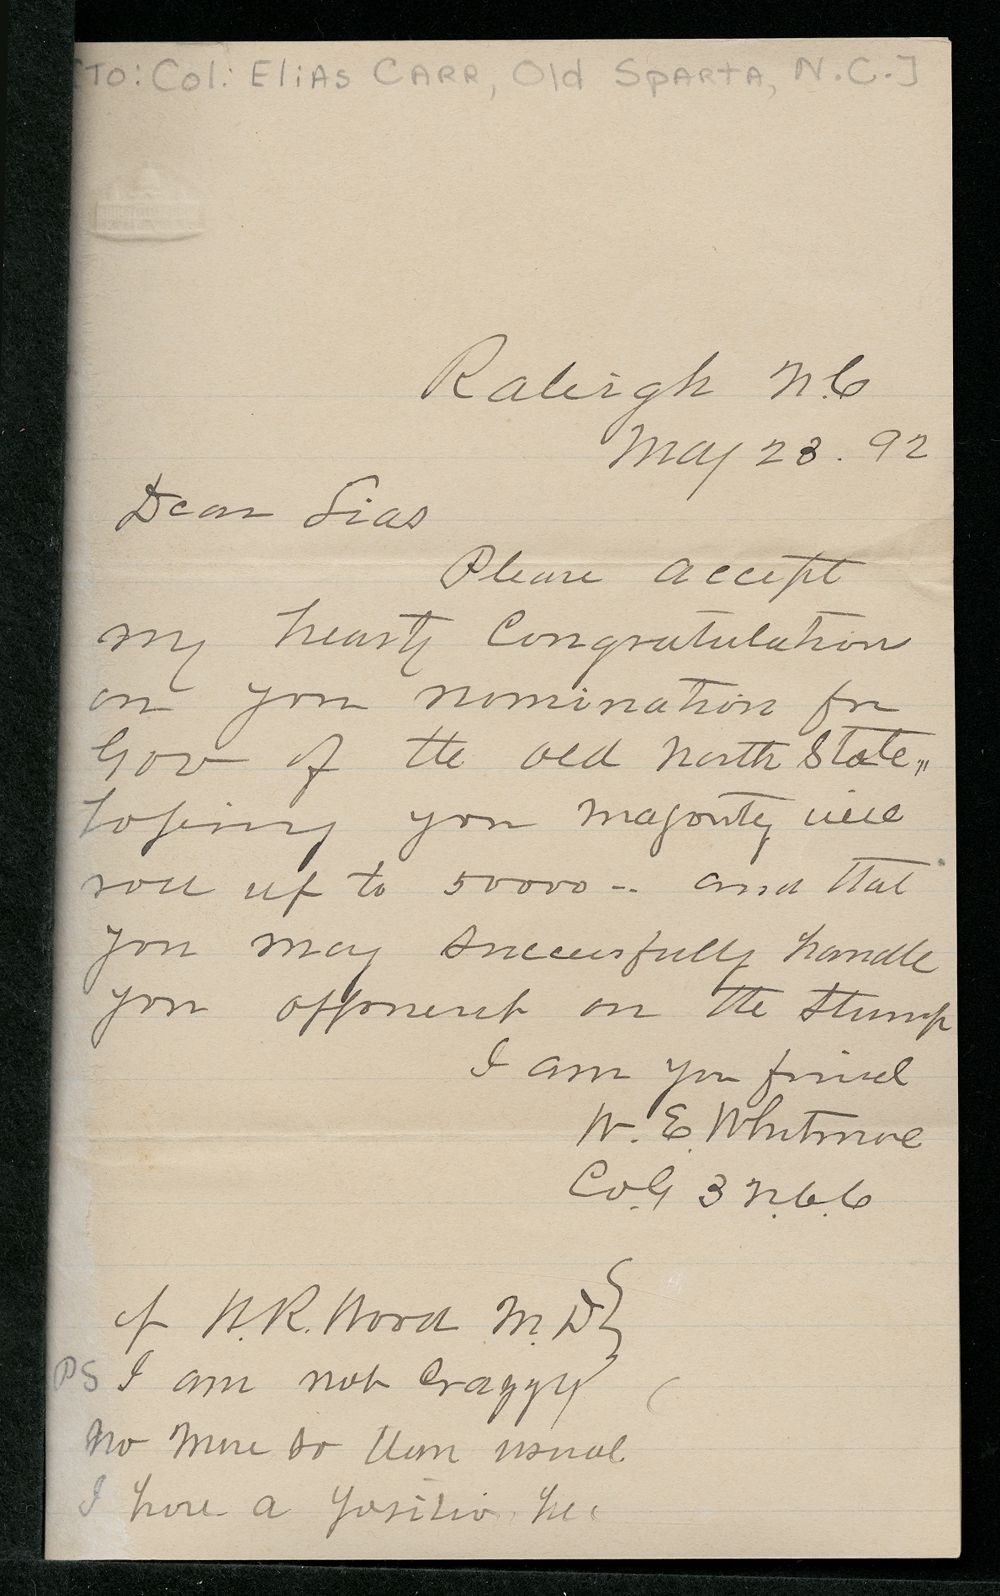 [To: Col: Elias Carr, Old Sparta, N.C.]
Raleigh N.C
May 23. 92
Dear Lias
Please accept
my hearty Congratulation
on your nomination for
Gov of the old North State,,
hoping your majority will
roll up to 50000 -- and that
you may successfully handle
your opponent on the stump
I am your friend
W. E. Whitmore
Co. G 3 N.C.C
of W.R. Wood M.D
PS I am not Craggy
No more so than usual
I have a position here